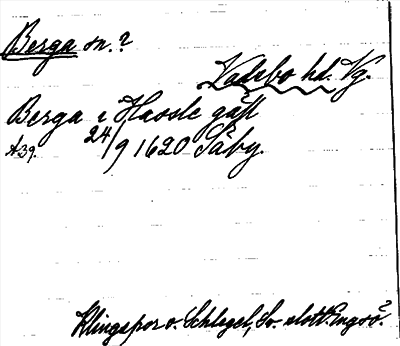 Berga sn.?
Vadsbo hd. Vg.
Berga i Hassle gäll
A39. 24/9 1620 Säby.
Klingspor o. Schlegel, Sv. slott. Engsö?